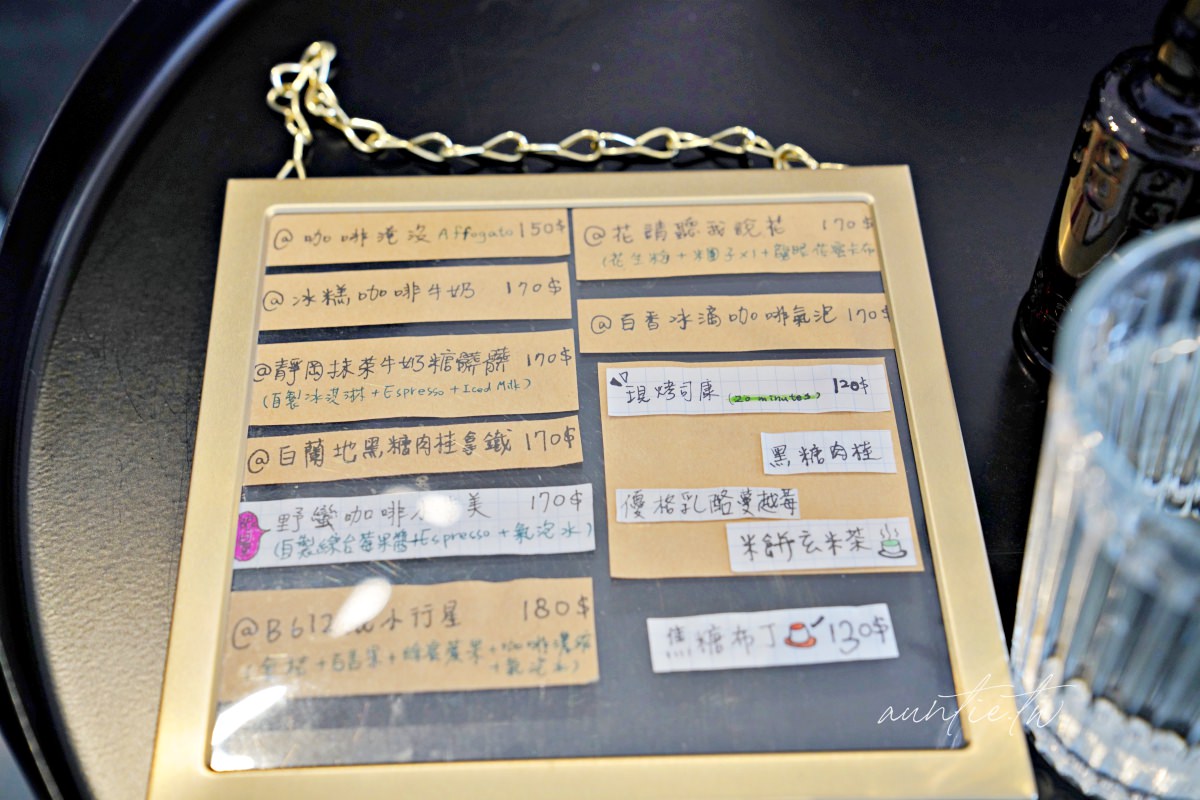 @咖啡淹沒Affogato 150$
@冰糕咖啡牛奶 170$
@靜岡抹茶牛奶糖髒髒 170$
(自製冰淇淋+Espresso+Iced Milk)
@白蘭地黑糖肉桂拿鐵 170$
野蠻咖啡冰 美 170$
(自製綜合莓果醬+Espresso+氣泡水)
@B612 小行星 180$
+百香果+蜂蜜 +咖啡
+氣泡水)
@花晴聽我說花 170$
@百香冰滴咖啡氣泡 170$
現烤司康 (20 minutes) 120$
黑糖肉桂
優格乳酪蔓越莓
米餅玄米茶
焦糖布丁 130$
auntie.tw